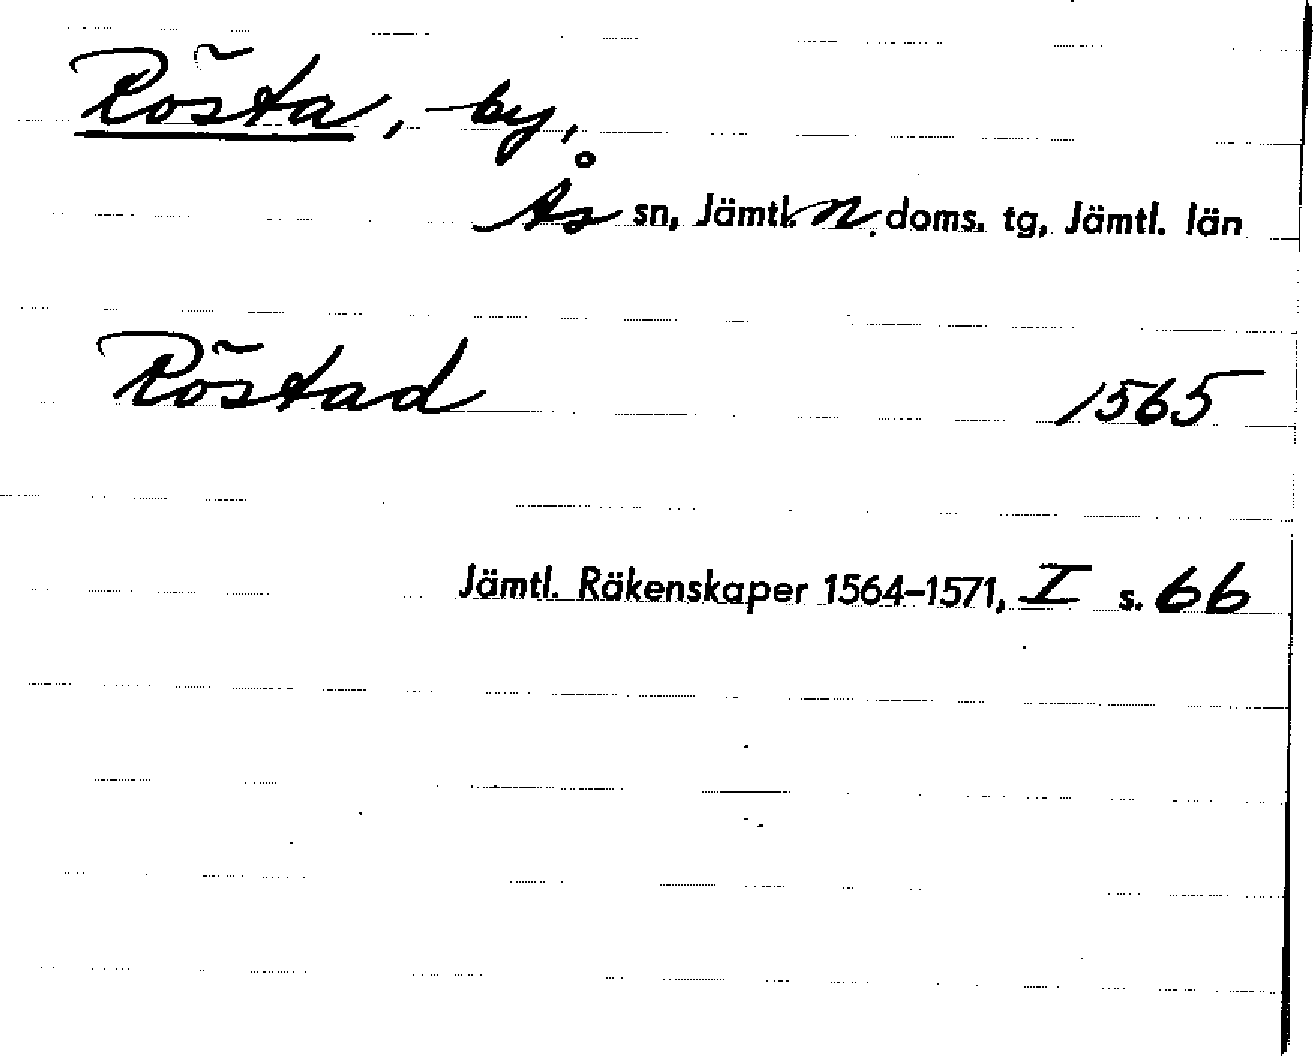 Rösta, -by,
Ås sn, Jämtl. N. doms. tg, Jämtl. län
Röstad 1565
Jämtl. Räkenskaper 1564-1571, I s. 66